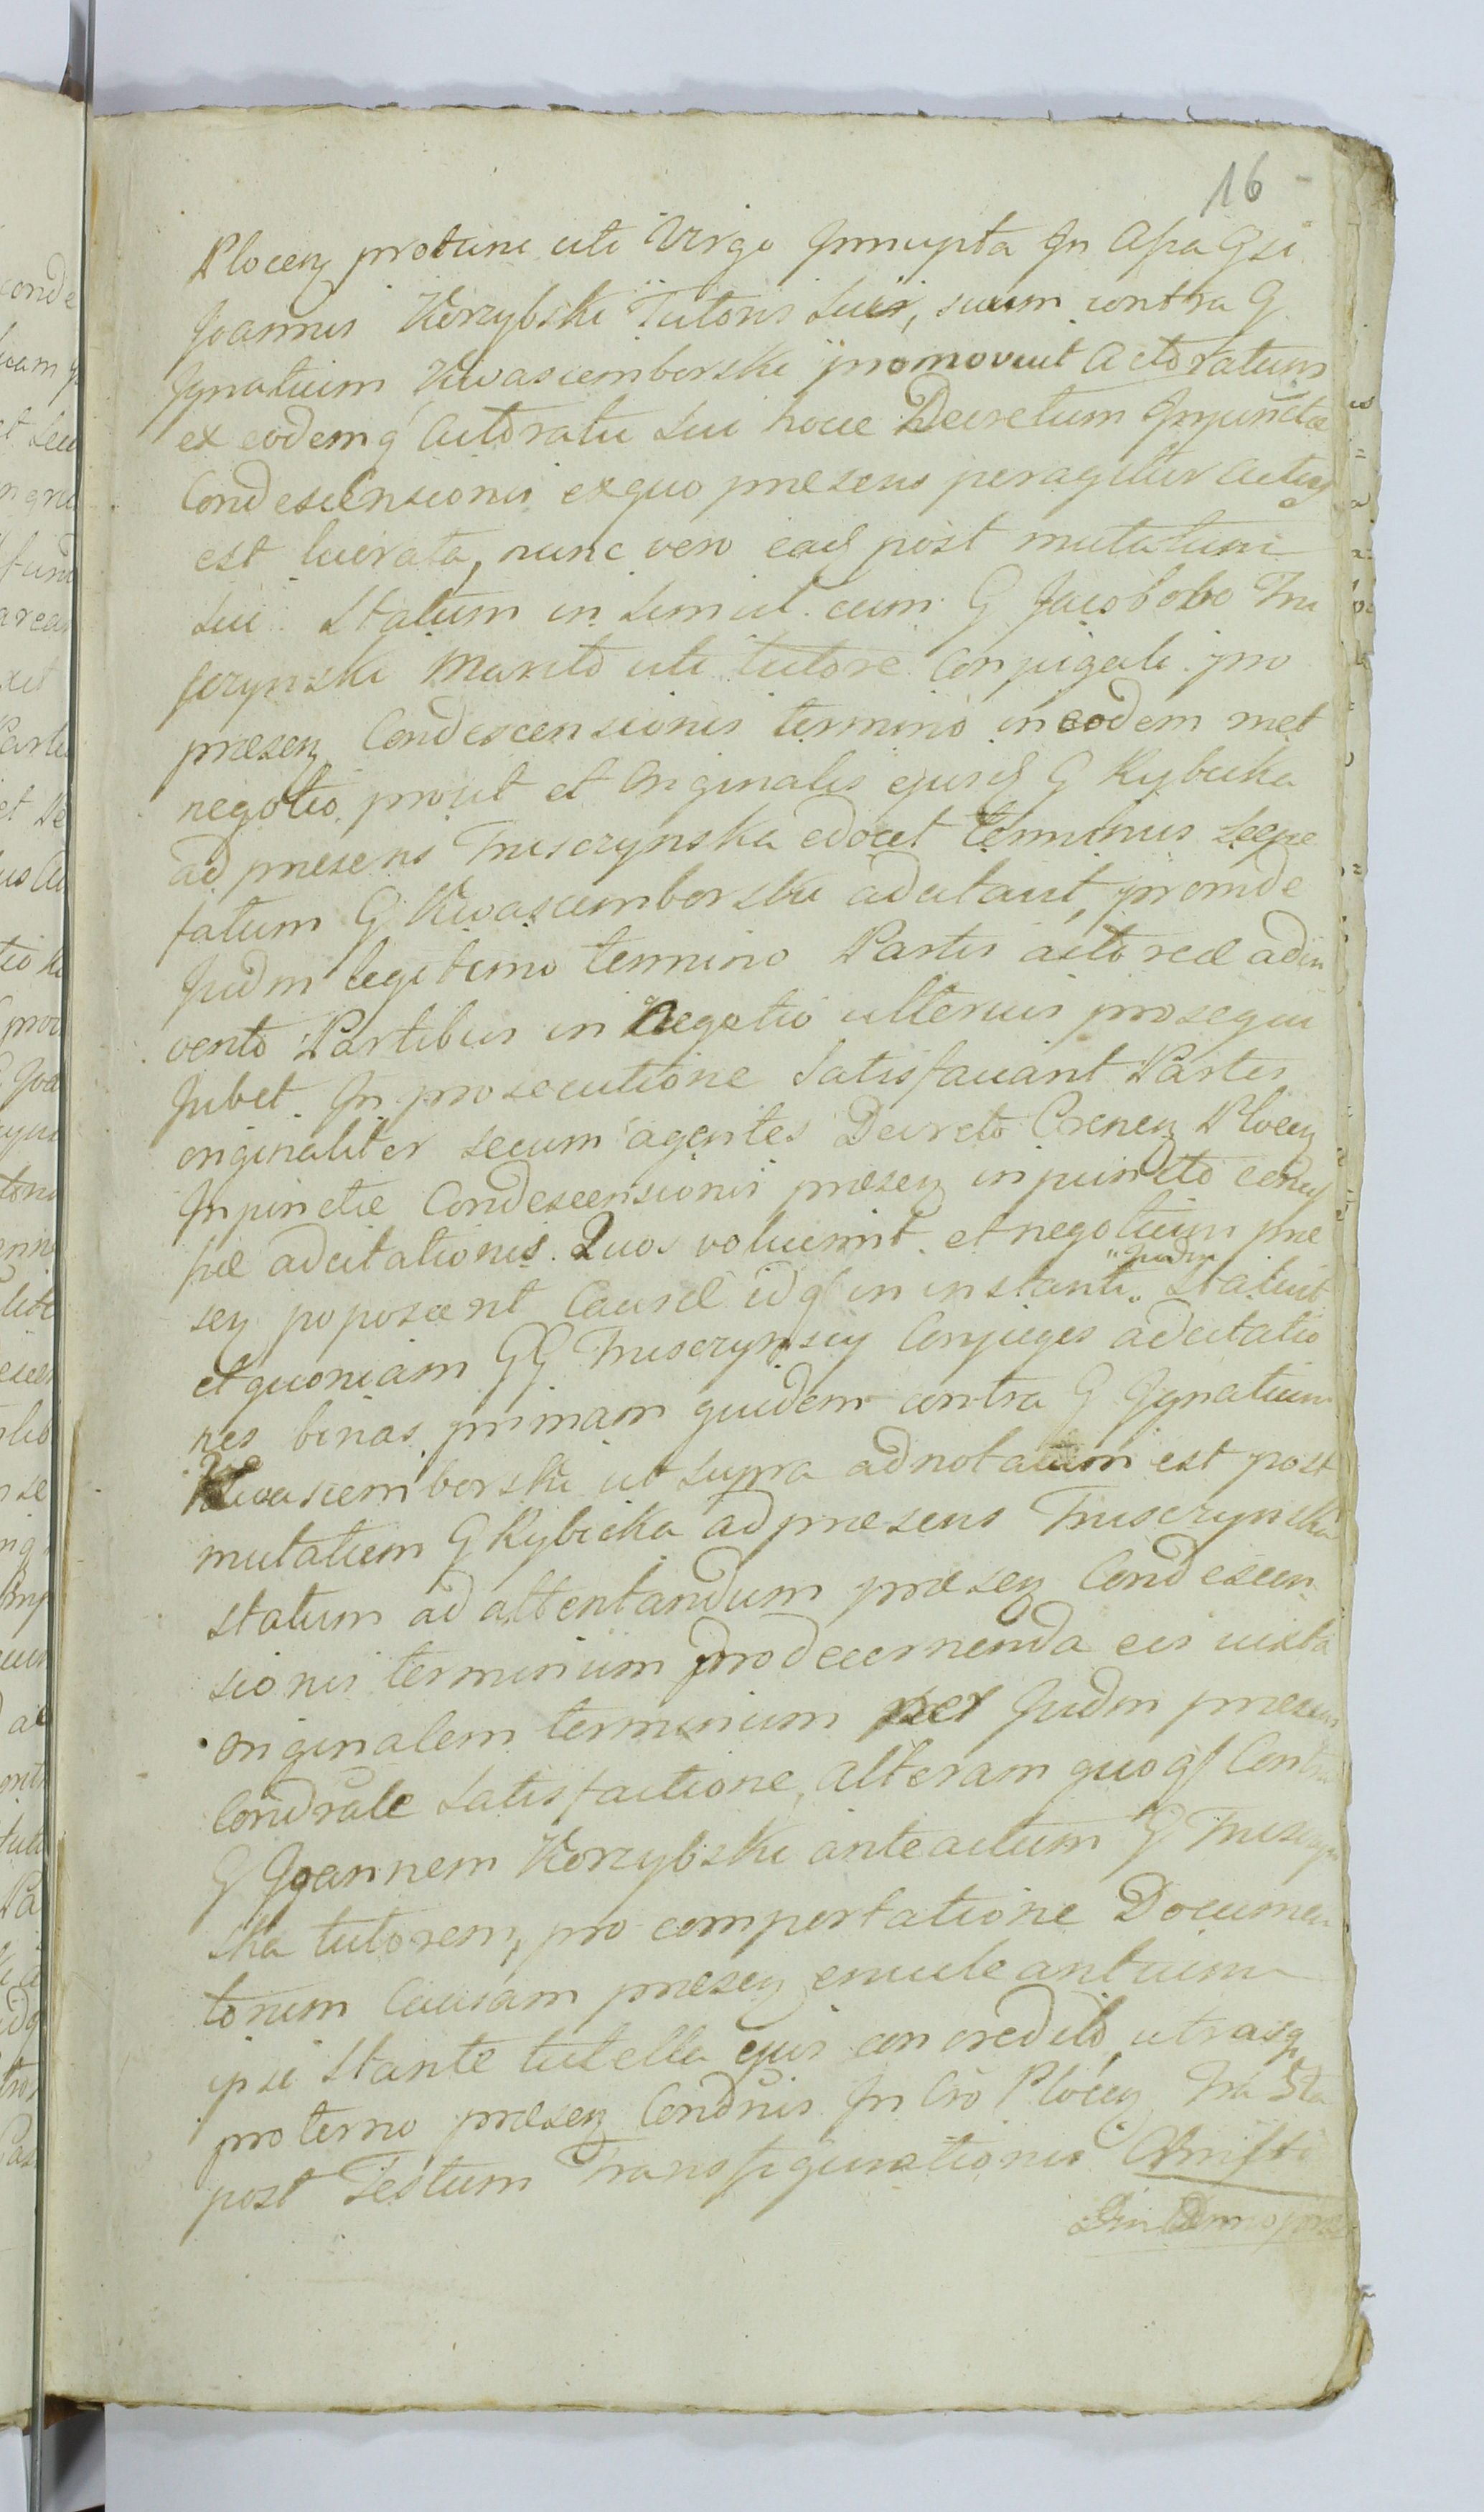 16
Plocen protunc uti Virgo Innupta In Assa Gsi
Joannis Korzybski Tutoris sui, suum contra G
Ignatium Kwasiemborski promovint Actoratum
ex eodemq Actoratu sui hocce Decretum Injunctæ
Condescensionis exquo præsens peragitur actus
est lucrata, nunc vero ead post mutatum
sui Statum in simul cum G Jacobobo Tru
scrynski Marito uti tutore Conjugali pro
præsen Condescensionis termino in eodem met
negotio prout et Originalis ejusd G Rybicka
ad præsens Truscrynska edocet terminus sæpe
fatum G Kwasiemborski adcitavit, proinde
Judm legitimo termino Partis actoreæ adin
vento Partibus in Negotio ulterius prosequi
Jubet. In prosecutione Satisfaciant Partes
originaliter secum agentes Decreto Crenen Plocen
Injunctæ Condescensionis præsen in puncto
adcitationis. Quos voluerint et negotium præ
sen poposcent Causæ idq in instanti "Judm" Statuit
et quoniam GG Truscrynscy Conjuges adcitatio
nes binas primam quidem contra G Ignatium
Kwasiemborski ut supra adnotatum est post
mutatum G Rybicka ad præsens Truscrynska
statum ad attentandum præsen Condescen
sionis terminum pro decernenda eis iuxta
originalem terminum per Judm præsens
Condrale satisfactione, alteram quoq Contra
G Joannem Korzybski anteactum G Truscryn
ska tutorem, pro comportatione Documen
torum Causam præsen enucleantium
ipsi stante tutella ejus concredito, utrasq
pro termo præsen Condnis In Cro Plocen Fra 5ta
post Festum Transfigurationis Christi
Dni Anno præ